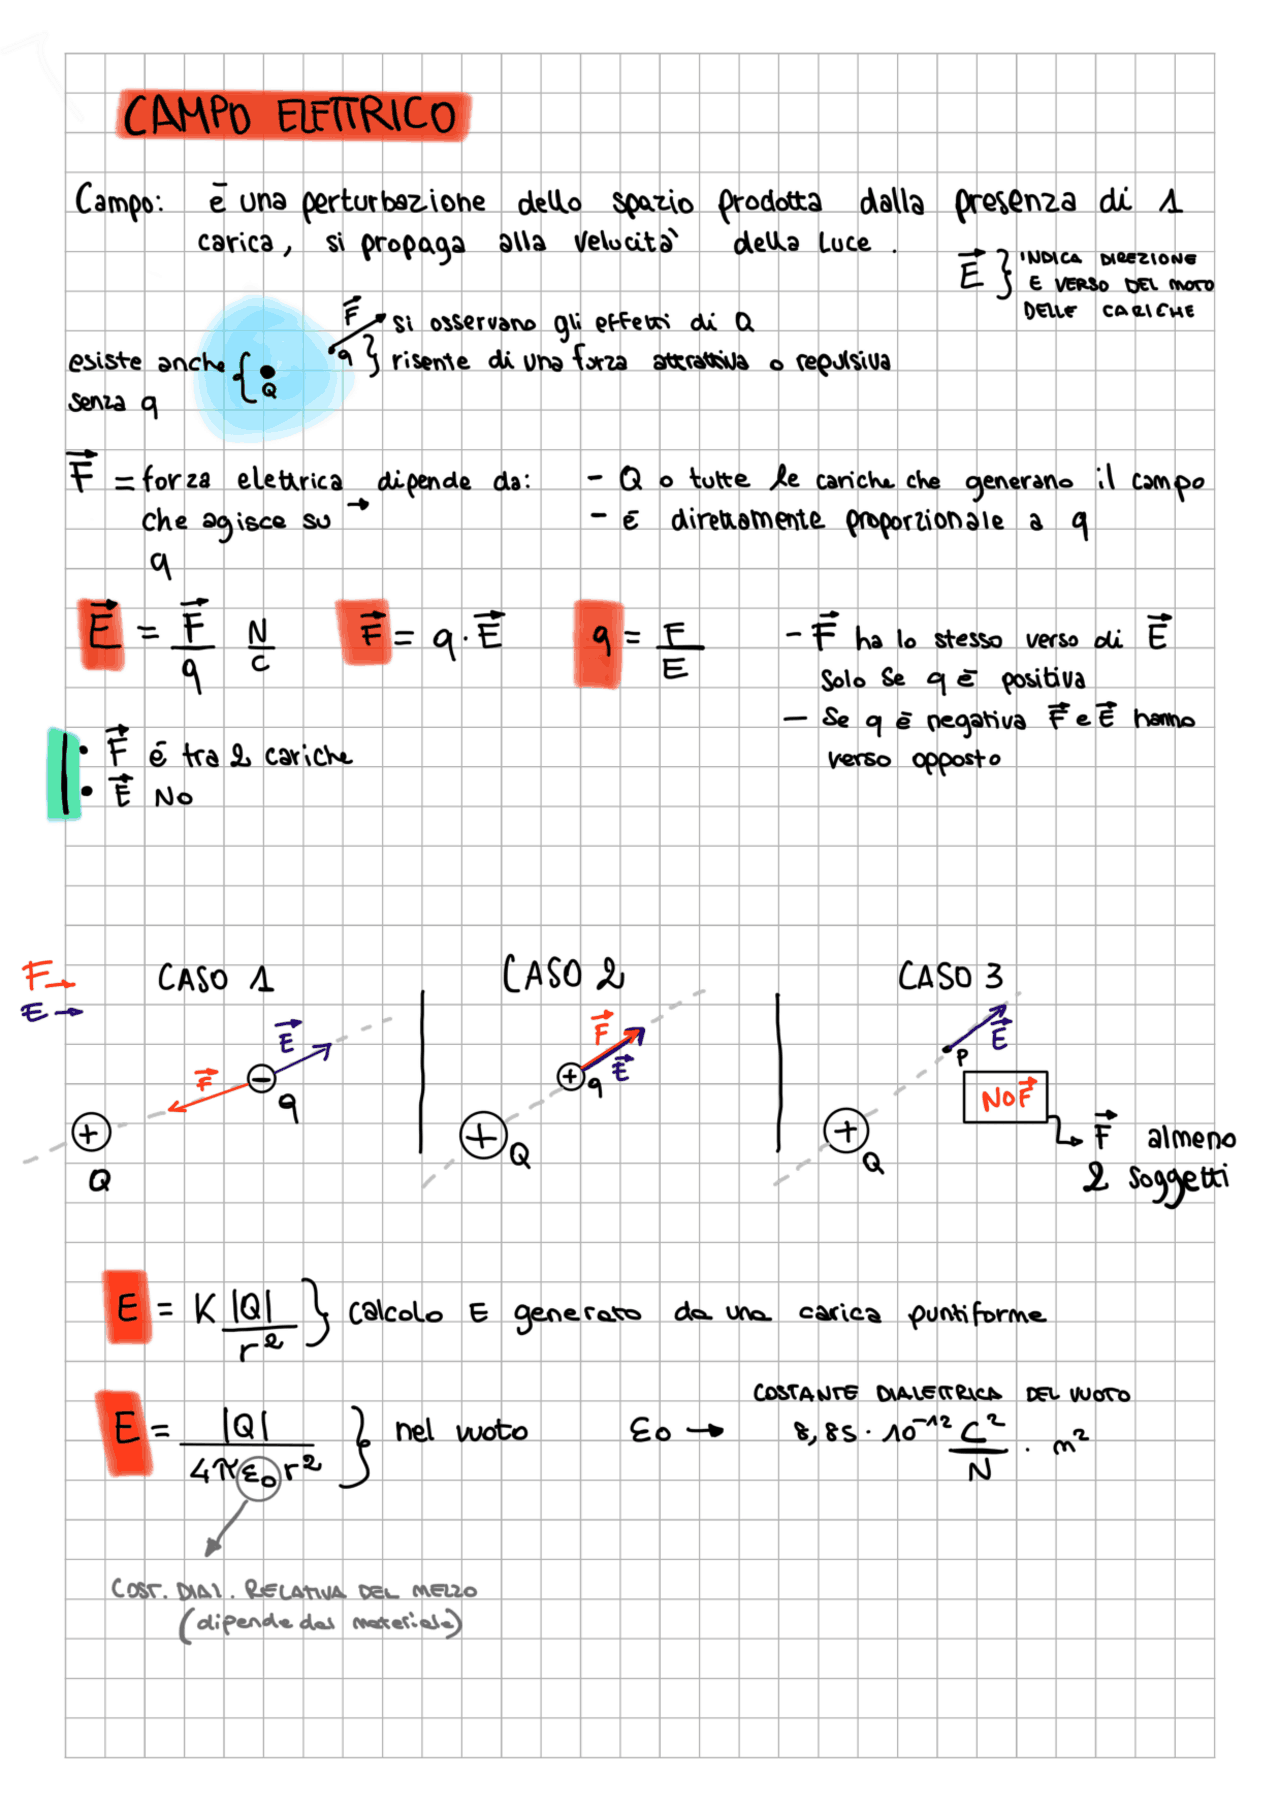 CAMPO ELETTRICO
Campo: è una perturbazione dello spazio prodotta dalla presenza di 1
carica, si propaga alla velocità della luce.
E } INDICA DIREZIONE
E VERSO DEL MOTO
DELLE CARICHE
F si osservano gli effetti di Q
esiste anche { Q q } risente di una forza attrattiva o repulsiva
senza q
F = forza elettrica dipende da: - Q o tutte le cariche che generano il campo
che agisce su → - è direttamente proporzionale a q
q
E = F/q N/C F = q · E q = F/E - F ha lo stesso verso di E
solo se q è positiva
- Se q è negativa F e E hanno
verso opposto
• F è tra 2 cariche
• E No
F → CASO 1 CASO 2 CASO 3
E →
E F E
F - q + q E P
NO F
+ Q + Q + Q
F almeno
2 soggetti
E = K |Q|/r² } calcolo E generato da una carica puntiforme
COSTANTE DIALETTRICA DEL VUOTO
E = |Q|/4πε₀r² } nel vuoto ε₀ → 8,85 · 10⁻¹² C²/N · m²
COST. DIAL. RELATIVA DEL MEZZO
(dipende dal materiale)